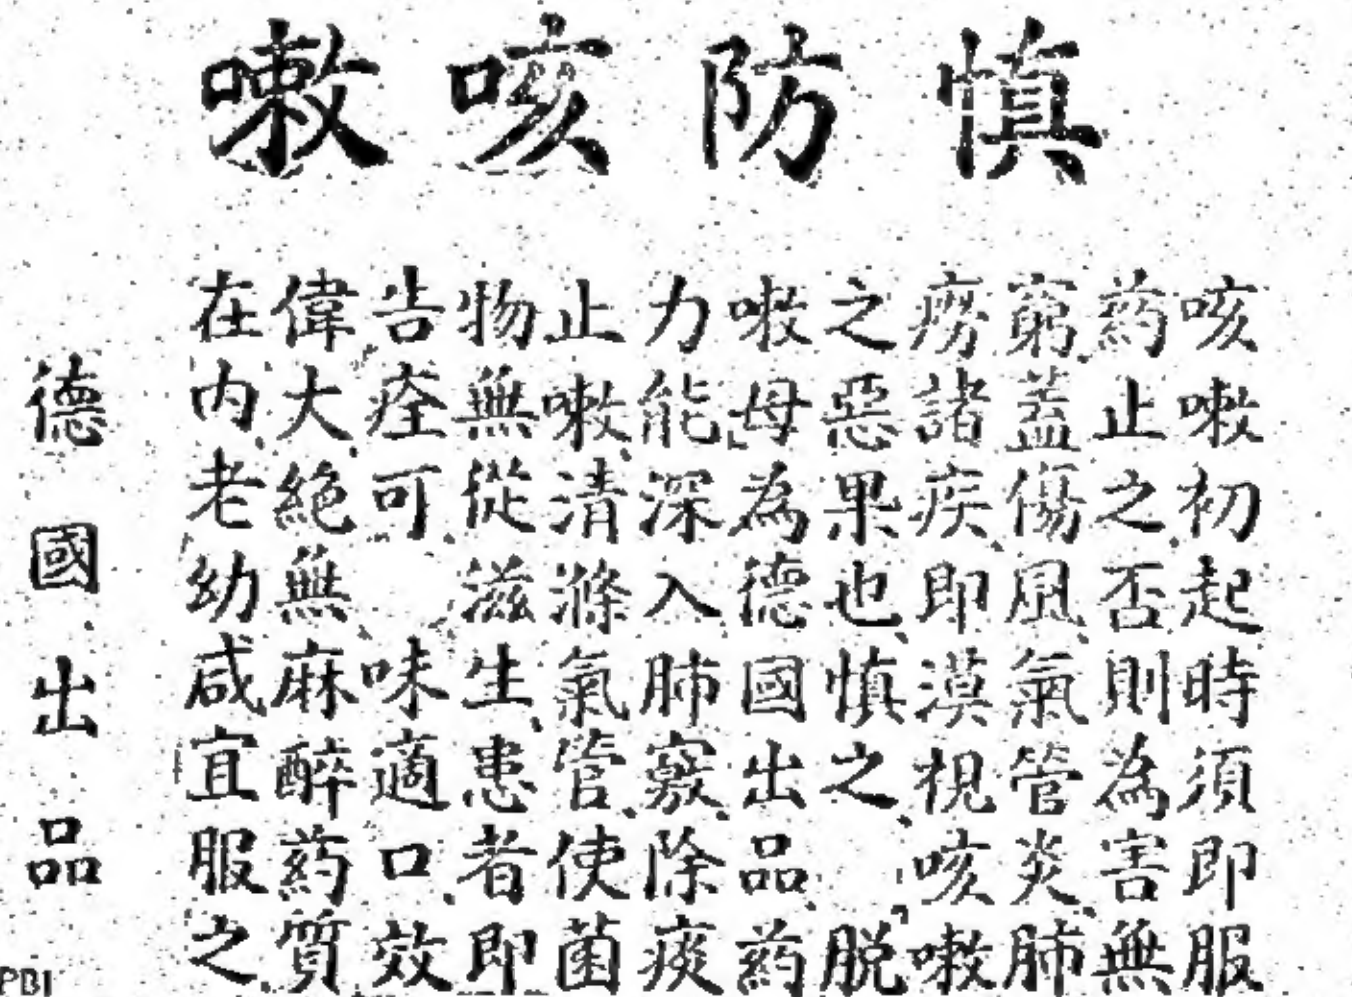 慎防咳嗽
咳嗽初起時須即服
葯止之、否則為害無
窮、蓋傷風、氣管炎、肺
癆諸疾、即漠視咳嗽
之惡果也、慎之、「脫
嗽母」為德國出品、葯
力能深入肺竅、除痰
止嗽、清滌氣管、使菌
物無從滋生、患者即
告痊可 味適口、效
偉大、絕無麻醉葯質
在內、老幼咸宜服之、
德國出品
PBI